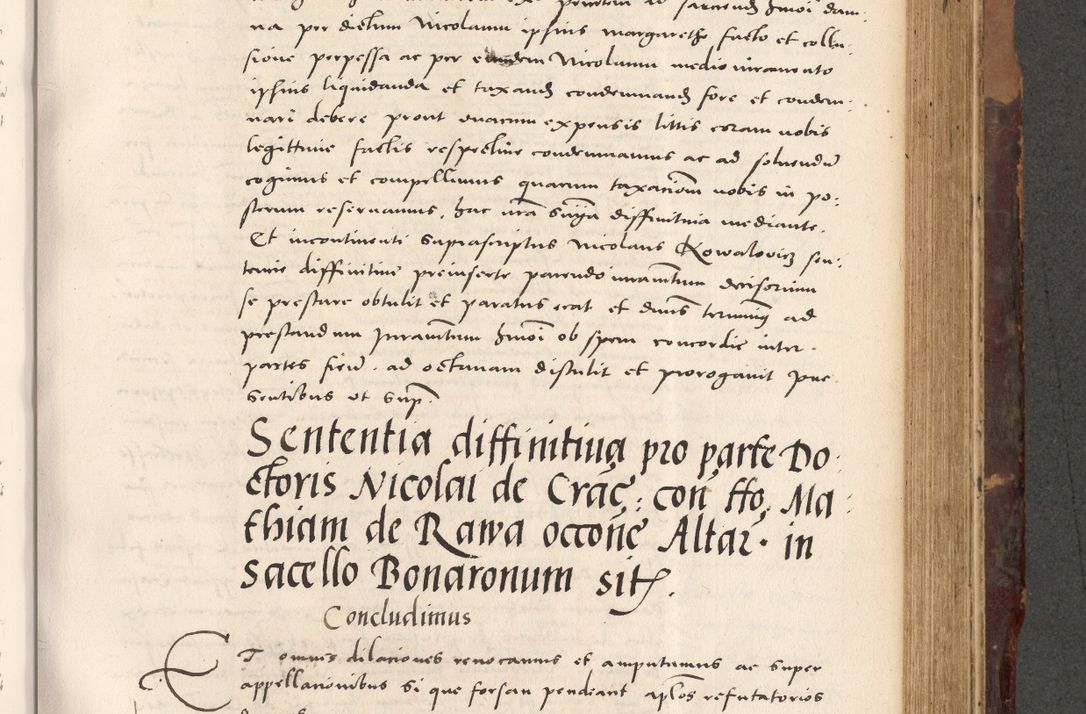 na per dictum Nicolaum ipsius margarethe facto et collu-
sione perpessa ac per eundem Nicolaum medio iuramento
ipsius liquidanda et taxand condemnand fore et condem-
nari debere prout in expensis littis coram nobis
legittime factis respective condemnamus ac ad solvendu
cogimus et compellimus quarum taxationem nobis in po-
sterum reservamus, hac nra snia diffinitiva mediante.
Et incontinenti suprascriptus Nicolaus Kowalovicz sen-
tencie diffinitive preinserte parendo iuramentum decisorium
se prestare obtulit et paratus erat et dnus terminum ad
prestandum Juramentum hmoi ob spem concordie inter
partes fiend. ad octavam distulit et prorogavit pre-
sentibus ut supra
Sententia diffinitiva pro parte Do-
ctoris Nicolai de Crac: con tto, Ma-
thiam de Rawa occone Altar. in
sacello Bonaronum sit.
Concludimus
ET omnes dilaciones revocamus et amputamus ac super
appellationibus si que forsan pendeant aplos refutatorios